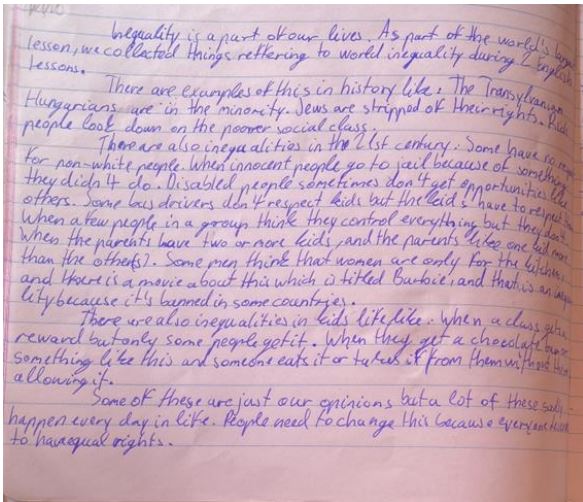 Inequality is a part of our lives. As part of the world's largest
lesson, we collected things reffering to world inequality during 2 English
lessons.
There are examples of this in history like: The Transylvanian
Hungarians are in the minority. Jews are stripped of their rights. Rich
people look down on the poorer social class.
There are also inequalities in the 21st century. Some have no respect
for non-white people. When innocent people go to jail because of something
they didn't do. Disabled people sometimes don't get opportunities like
others. Some bus drivers don't respect kids but the kids have to respect them.
When a few people in a group think they control everything but they don't.
When the parents have two or more kids, and the parents like one kid more
than the other(s). Some men think that women are only for the kitchen
and there is a movie about this which is titled Barbie, and that is an inequa-
lity because it's banned in some countries.
There are also inequalities in kids life like: When a class gets a
reward but only some people get it. When they get a chocolate bar or
something like this and someone eats it or takes it from them without them
allowing it.
Some of these are just our opinions but a lot of these sadly
happen every day in life. People need to change this because everyone
to have equal rights.